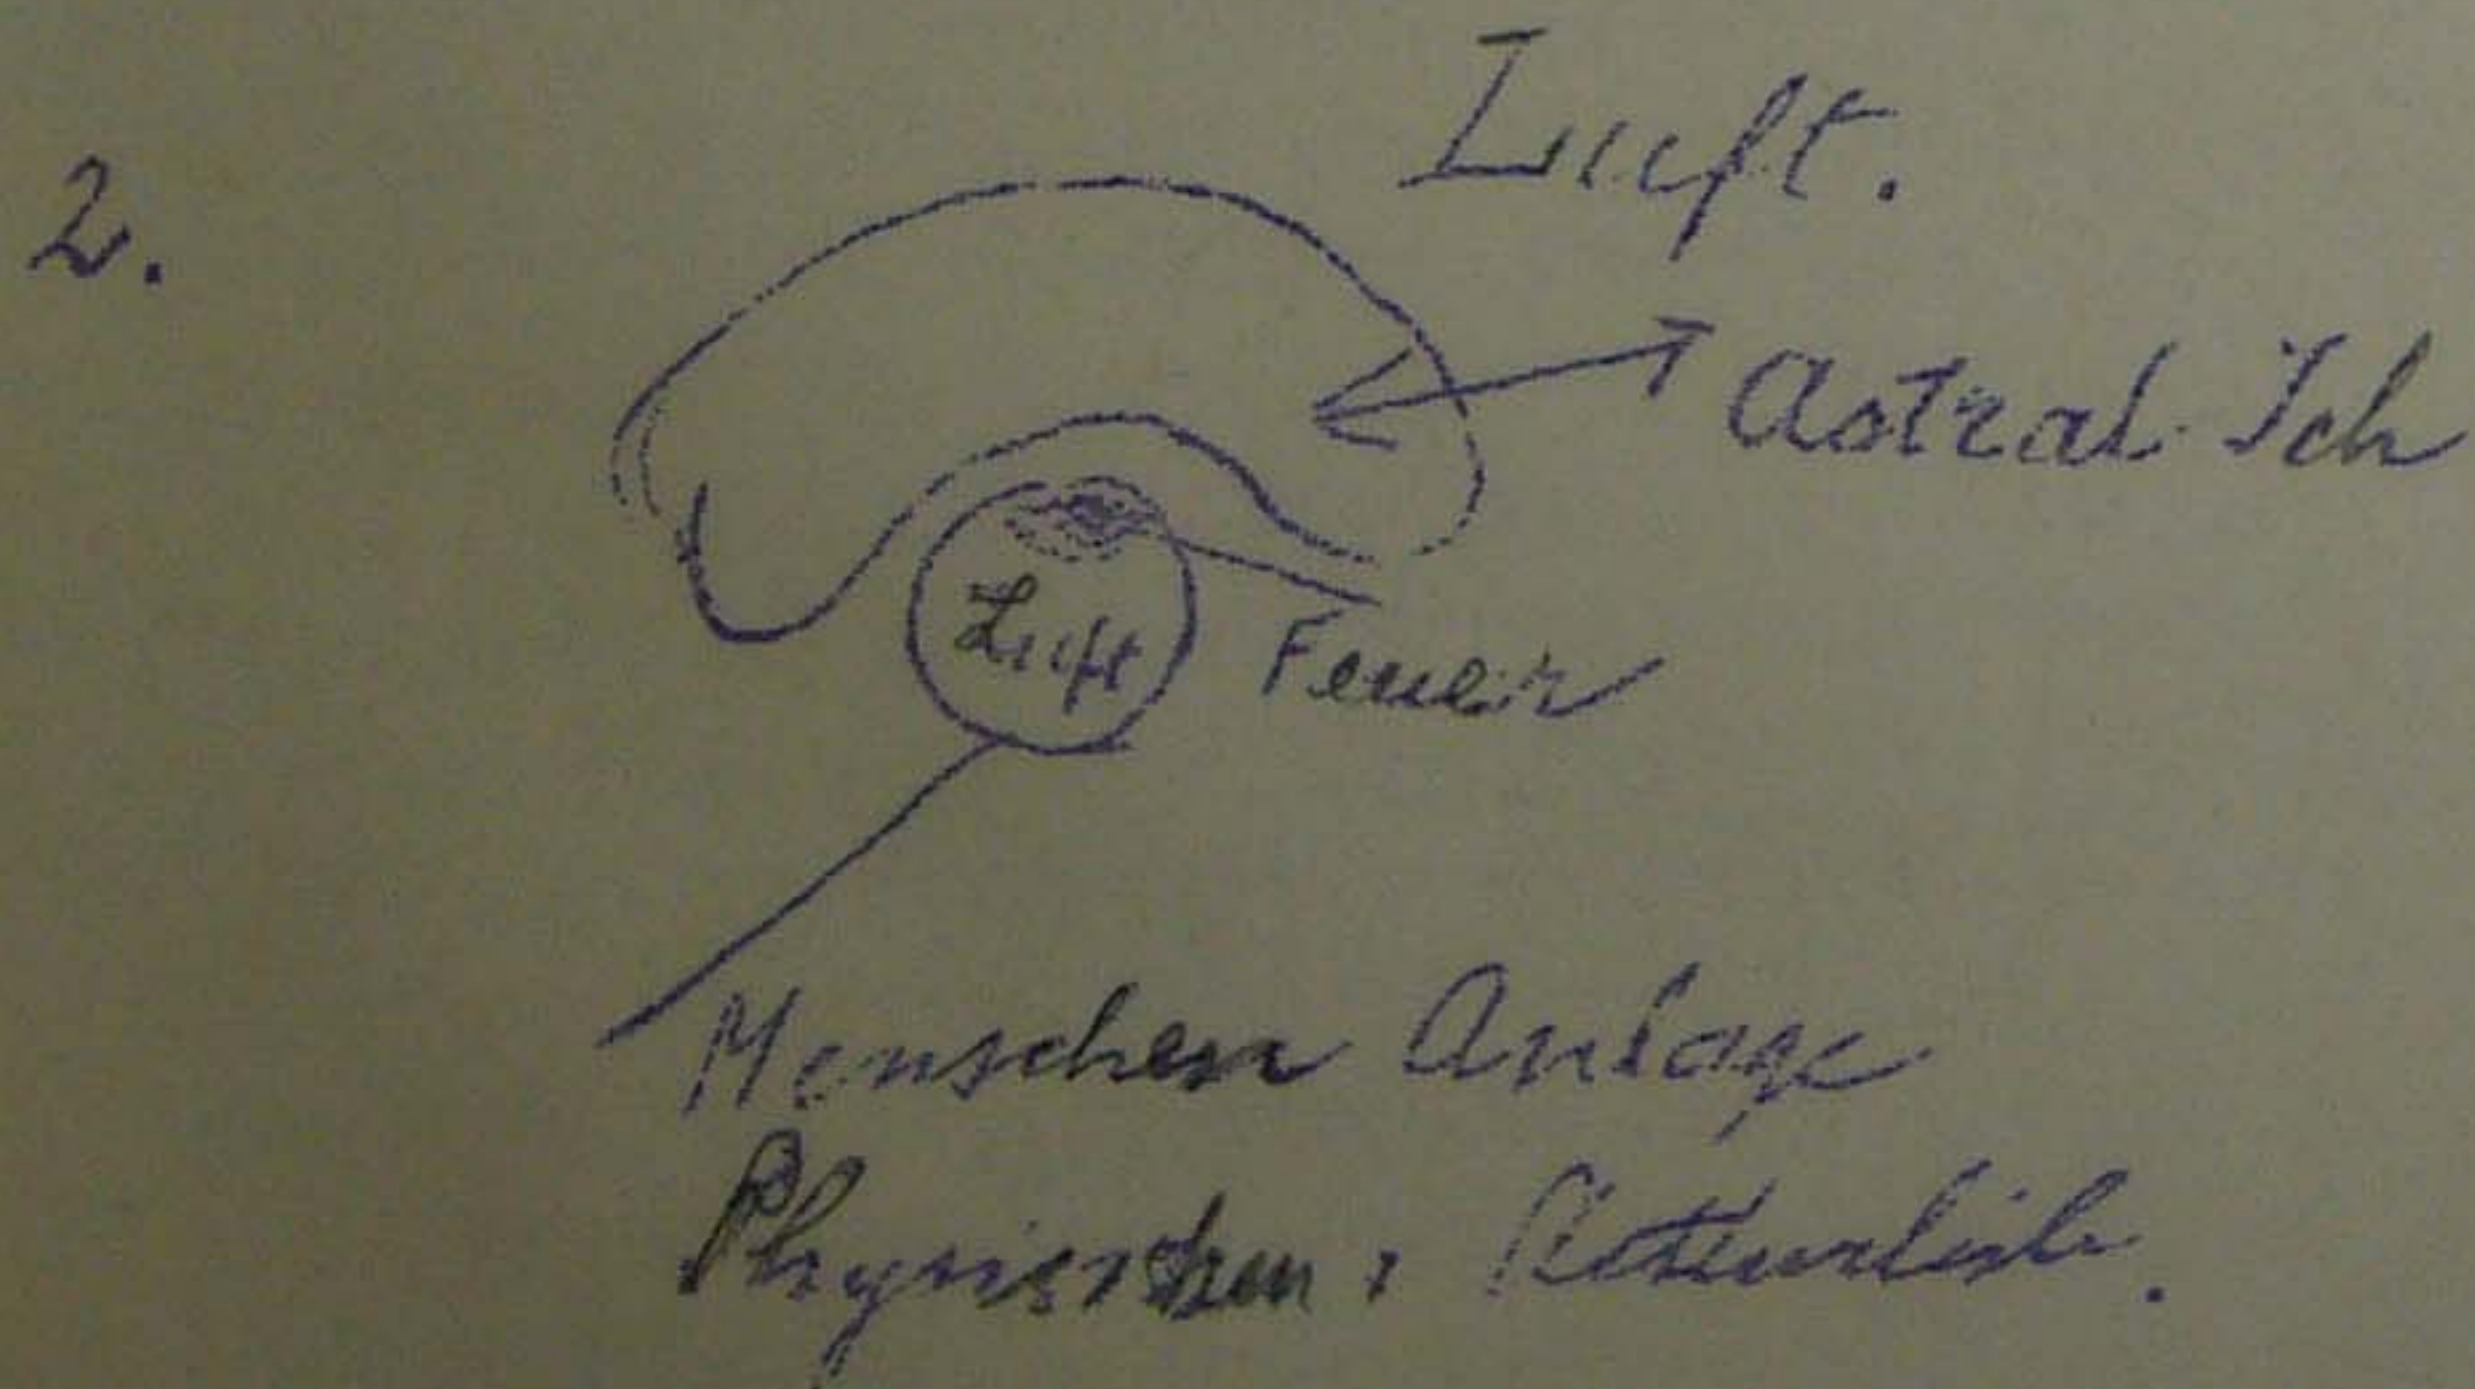 2.
Luft.
Astral Ich
Luft
Feuer
Menschen Anlage
Physischen,